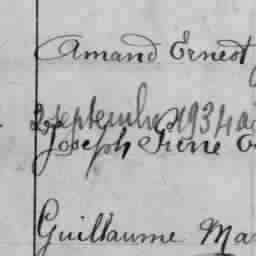 Amand Ernest
2 septembre 1934 a
Joseph Irené
Guillaume Ma